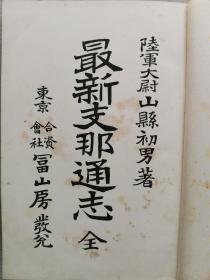 陸軍大尉山縣初男著
最新支那通志 全
東京 合資會社 冨山房發兌